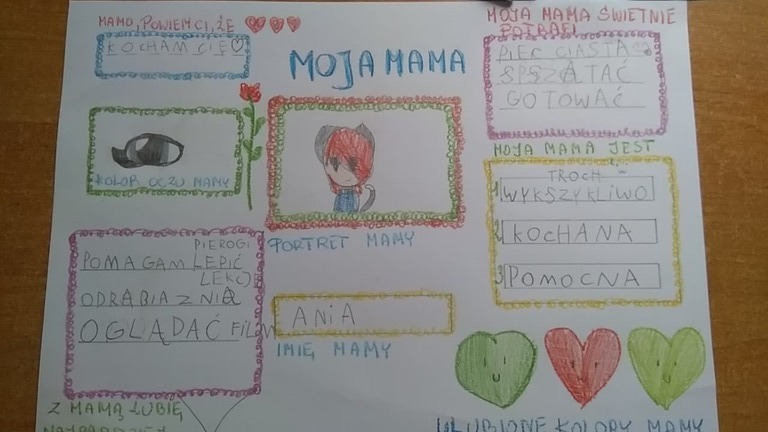 MAMO, POWIEM CI, ŻE
KOCHAM CIĘ
MOJA MAMA
MOJA MAMA ŚWIETNIE
POTRAFI
PIEC CIASTA
SPSZĄTAĆ
GOTOWAĆ
KOLOR OCZU MAMY
PORTRET MAMY
MOJA MAMA JEST
TROCH
1 WYKSZYKLIWO
2 KOCHANA
3 POMOCNA
PIEROGI
POMAGAM LEPIĆ
LEKCJ
ODRABIA Z NIĄ
OGLĄDAĆ FILM
Z MAMĄ LUBIĘ
NAJBARDZIEJ
ANIA
IMIĘ MAMY
ULUBIONE KOLORY MAMY